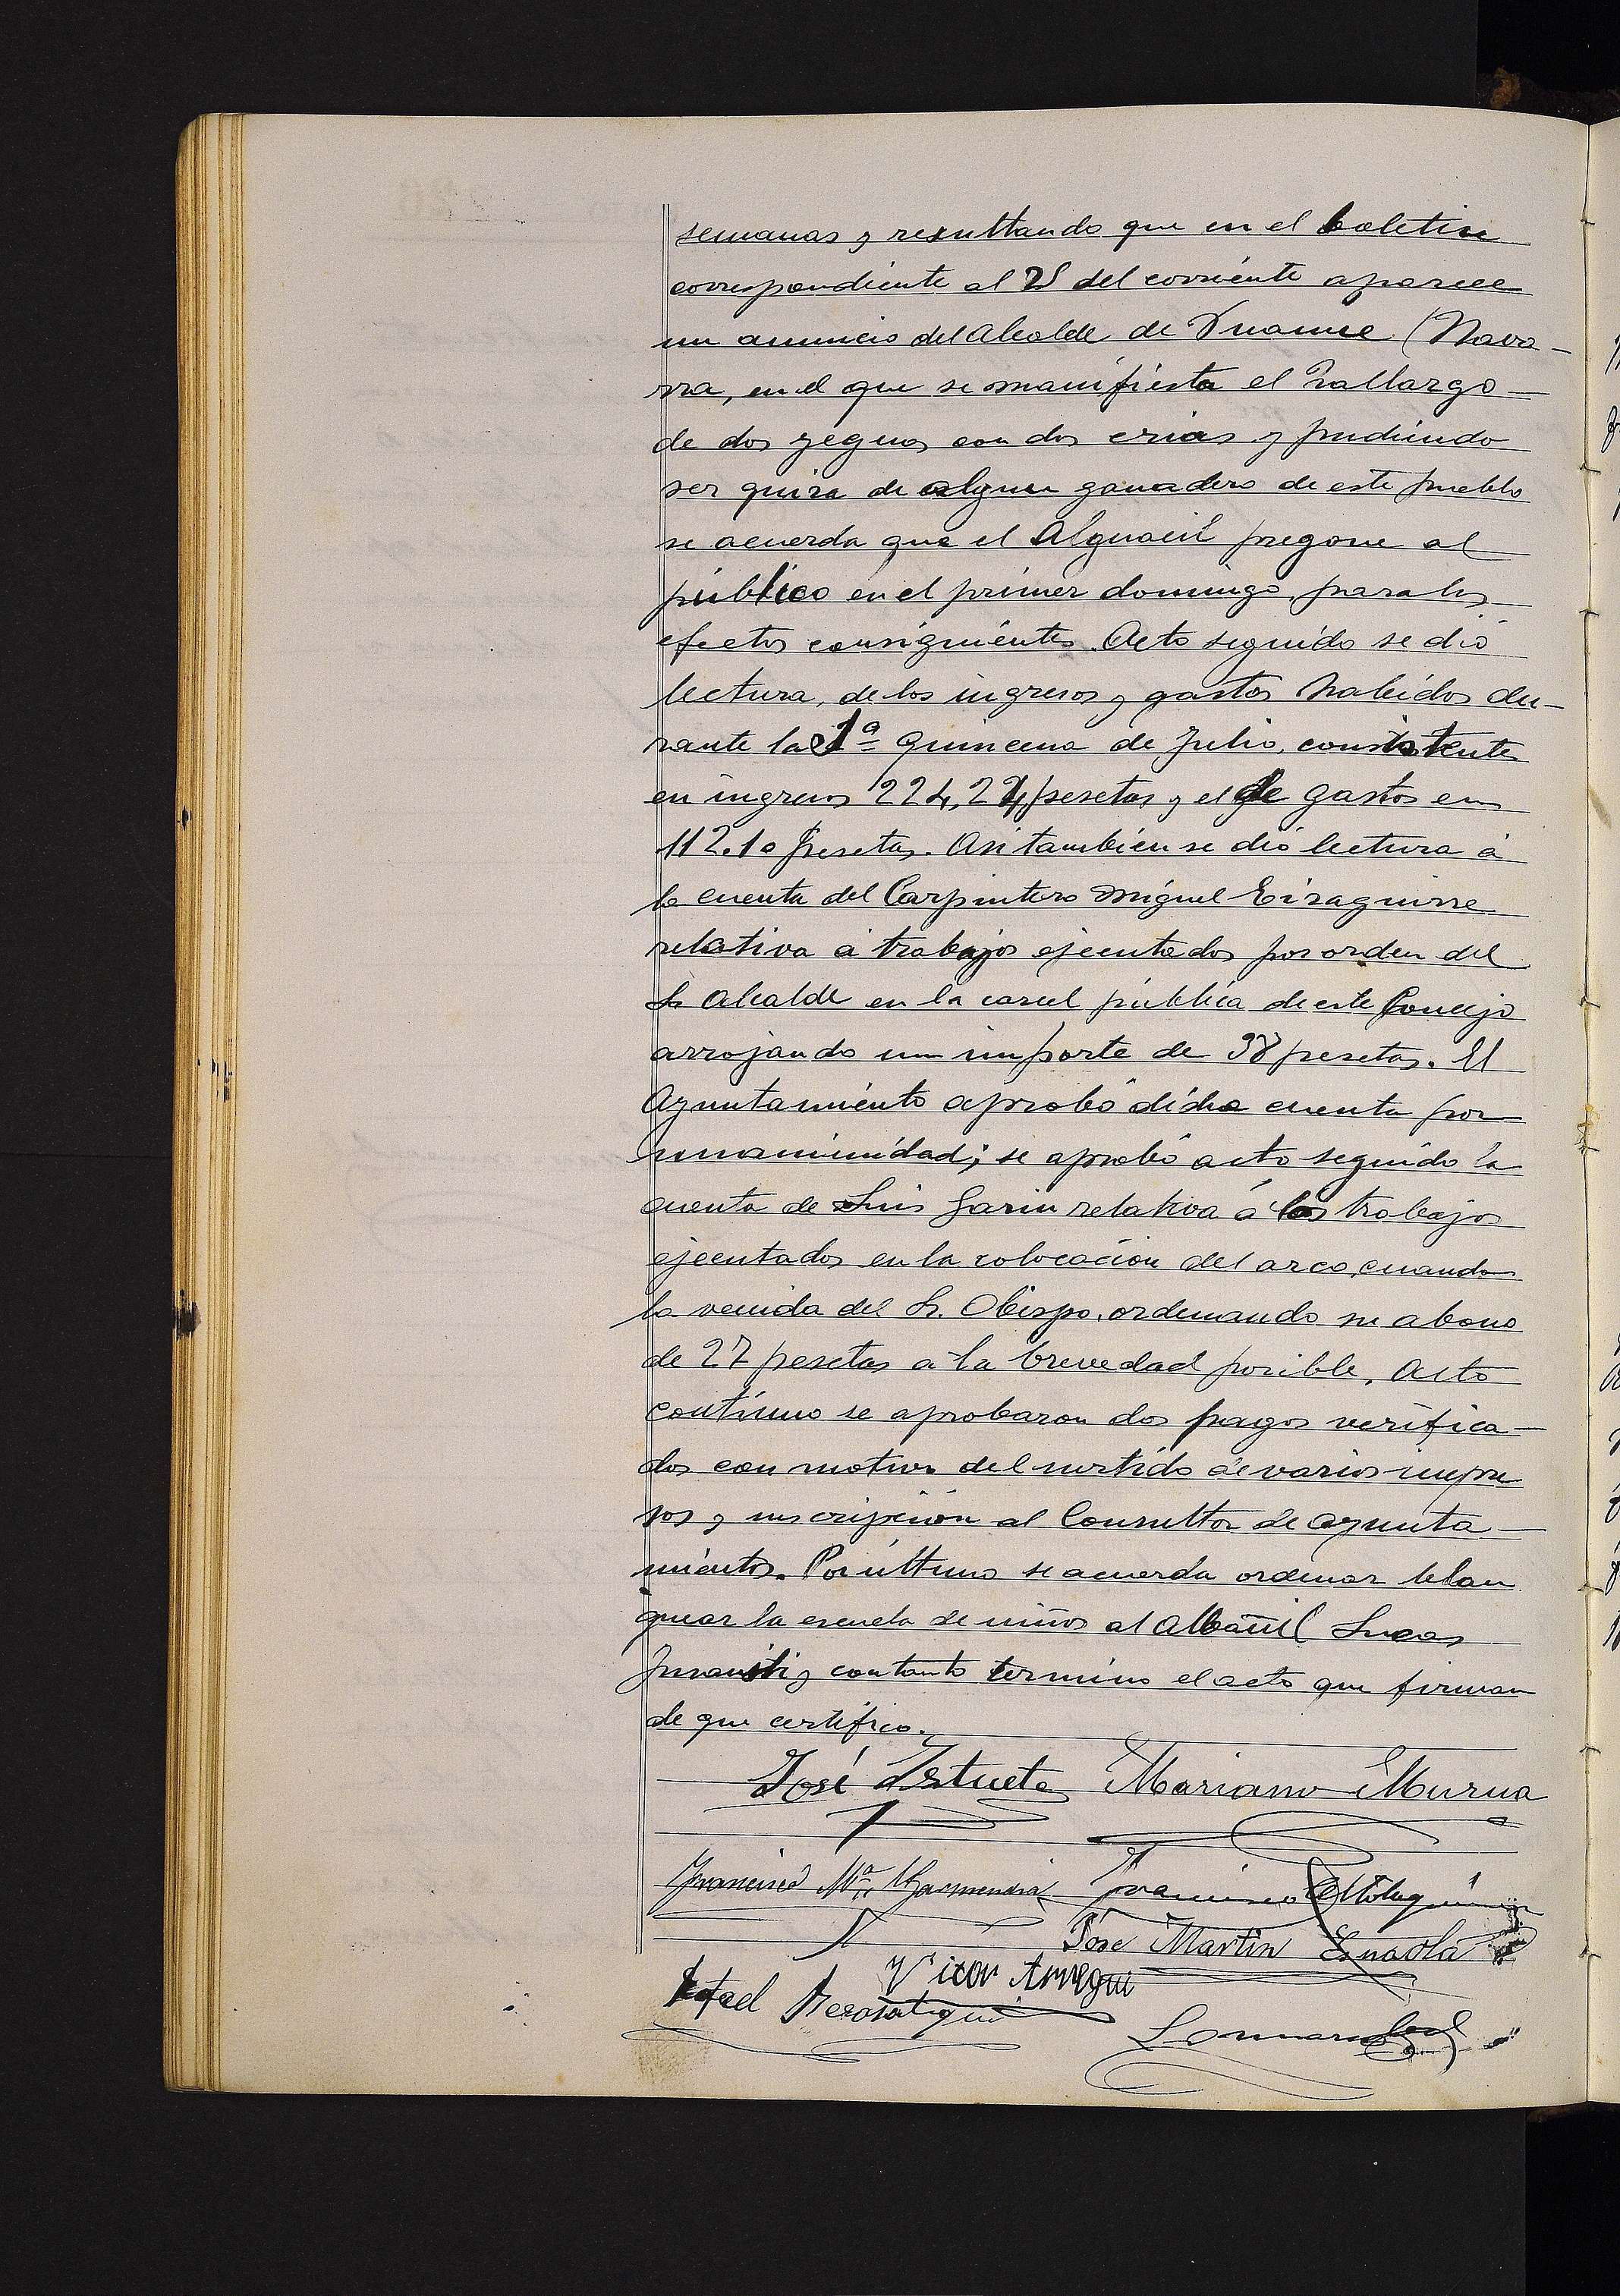 semanas y resultando que en el boletin
correspondiente al 25 del corriente aparece
un anuncio del Alcalde de (Nava-
rra, en el que se manifiesta el hallazgo
de dos yeguas con dos crias y pudiendo
ser quiza de algun ganadero de este pueblo
se acuerda que el Alguacil pregone al
público en el primer domingo, para los
efectos consiguientes. Acto seguido se dió
lectura, de los ingresos y gastos habidos du-
rante la 1ª quincena de Julio, consistente
en ingresos 224,24 pesetas y el de gastos en
112.10 pesetas. Asi tambien se dió lectura á
la cuenta del Carpintero Miguel Eizaguirre
relativa á trabajos ejecutados por orden del
Sr Alcalde en la carcel pública de este Concejo
arrojando un importe de 38 pesetas. El
Ayuntamiento aprobó dicha cuenta por
unanimidad; se aprobó acto seguido la
cuenta de Luis Garin relativa á los trabajos
ejecutados en la colocacion del arco, cuando
la venida del Sr. Obispo, ordenando su abono
de 27 pesetas a la brevedad posible. Acto
contínuo se aprobaron dos pagos verifica-
dos con motivo del surtido de varios impre
sos y suscripción al Consultor de Ayunta-
mientos. Por último se acuerda ordenar blan
quear la escuela de niños al Albañil Lucas
y con tanto termino el acto que firman
de que certifico.
José Iztueta Mariano Murua
Francisco Mª Garmendia Francisco
José Martin Esnaola
Victor Arregui
Rafael Berasategui